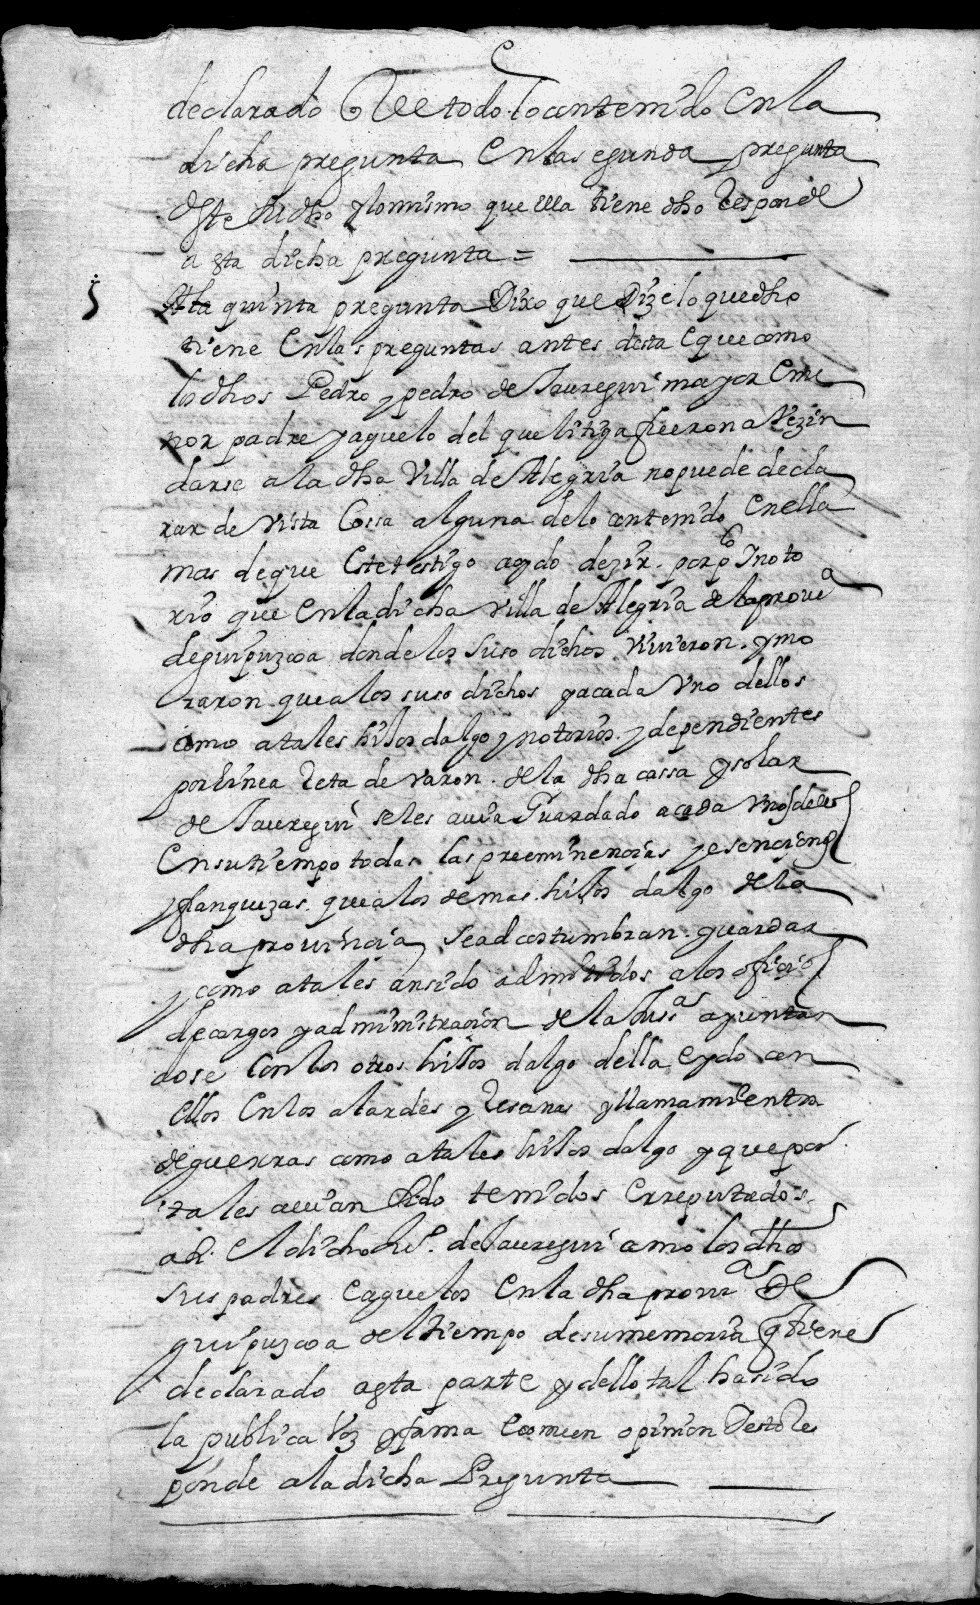 declarado E de todo lo contenido en la
dicha pregunta en la segunda pregunta
deste su dho y lo mismo que en ella tiene dho Responde
a esta dicha pregunta =
5 A la quinta pregunta Dixo que Dize lo que dho
tiene En las preguntas antes desta E que como
los dhos Pedro y pedro de Jauregui mayor E me
nor padre y aguelo del que litiga fueron a Vezin
darse a la dha Villa de Alegria no puede decla
rar de Vista Cossa alguna de lo contenido En ella
mas de que Este testigo a oydo dezir por pco I noto
rio que En la dicha Villa de Alegria de la prova
de guipuzcoa donde los suso dichos Vivieron y mo
raron que a los suso dichos y a cada Uno dellos
como a tales hijos dalgo y notorios y dependientes
por linea Reta de Varon de la dha cassa y solar
de Jauregui se les avia Guardado a cada Uno dellos
En su tiempo todas las preeminencias y esenciones
y franquezas que a los demas hijos dalgo de la
dha provincia se acostumbran guardar
y como a tales an sido admitidos a los oficios
de cargos y administracion de la Jusa ayuntan
dose Con los otros hijos dalgo della E ydo con
Ellos En los alardes y Resenas y llamamientos
de guerras como a tales hijos dalgo y que por
tales avian Sido tenidos E rreputados
asi El dicho de Jauregui como los dhos
sus padres E aguelos En la dha provia de
guipuzcoa del tiempo de su memoria q tiene
declarado a esta parte y dello tal ha sido
la publica Voz y fama E comun opinion Desto Res
ponde a la dicha Pregunta